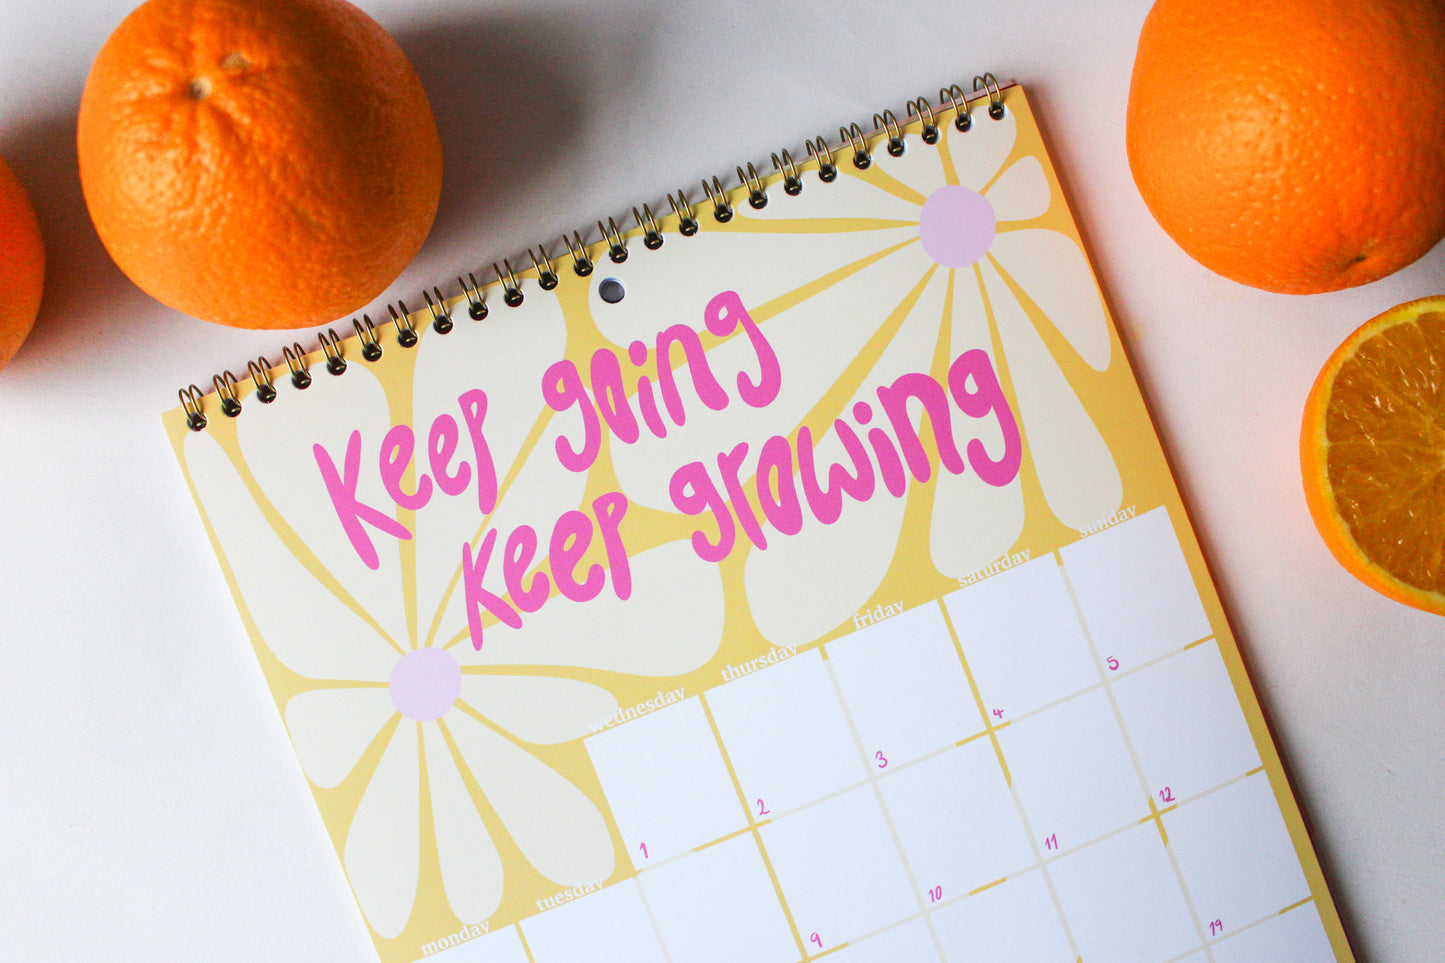 Keep going
Keep growing
monday tuesday wednesday thursday friday saturday sunday
1 2 3 4 5
9 10 11 12
19